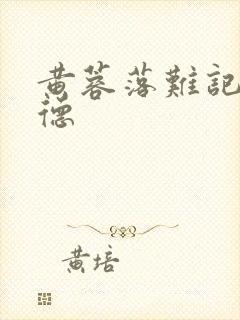 黄蓉落難記
德
黄培